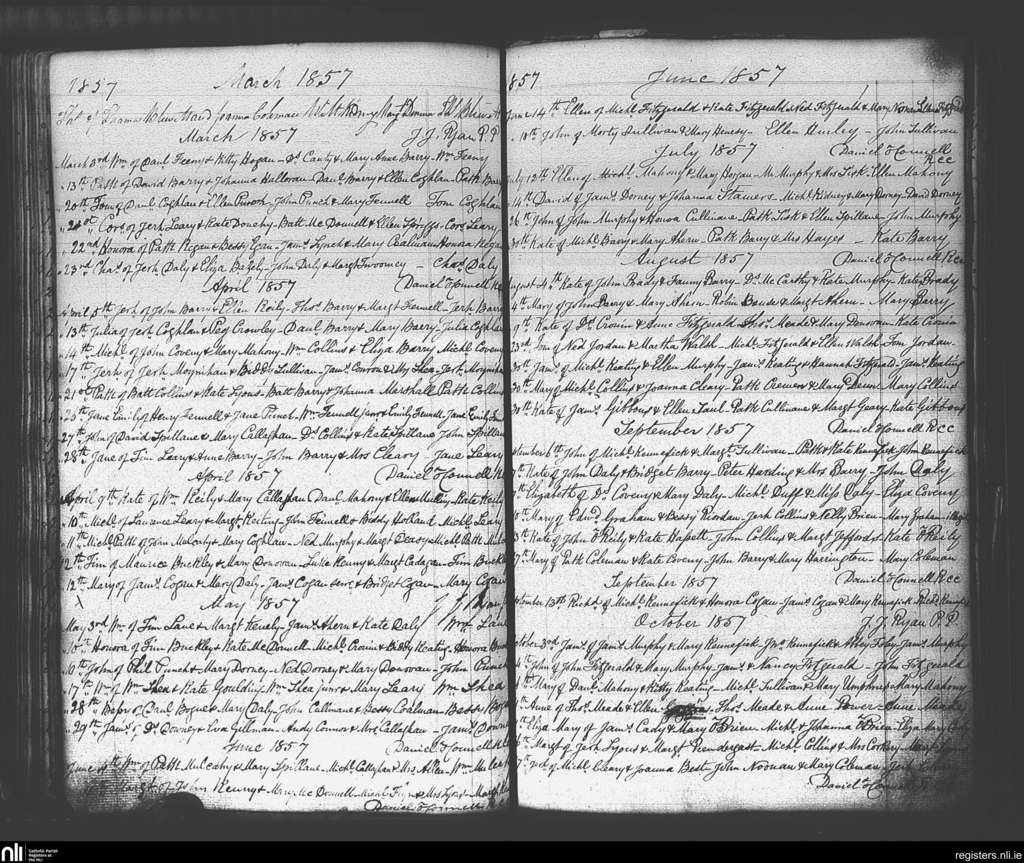 1857 March 1857
March 1857 J. J. Ryan P. P.
March 3rd Wm of Danl Feeny & Kitty Hogan - Ds Canty & Mary Anne Barry - Wm Feeny
13th Patk of David Barry & Johanna Halloran - Danl Barry & Ellen Coghlan - Patk Barry
20th Tom of Danl Coghlan & Ellen - John Pinch & Mary Fennell Tom Coghlan
Corns of Jerh Leary & Kate Donohy - Batt Mc Donnell & Ellen Spriggs - Cors Leary
22nd Honora of Patk Regan & Bessy Egan - Jams Lynch & Mary Honora Regan
23rd Chas of Jerh Daly & Eliza - John Daly & Margt Twoomey - Chas Daly
April 1857 Daniel O'Connell
April 5th Jerh of John Barry & Ellen Reily - Thos Barry & Margt Fennell - Jerh Barry
13th Julia of Jerh Coghlan & Peg Crowley - Danl Barry & Mary Barry - Julia Coghlan
14th Michl of John Coveny & Mary Mahony - Wm Collins & Eliza Barry Michl Coveny
17th Jerh of Jerh Moynihan & Biddy Sullivan - Jams Conron & My Shea - Jerh Moynihan
21st Patk of Batt Collins & Kate Lyons - Batt Barry & Johanna Marshall Patk Collins
26th Jane Emily of Henry Fennell & Jane - Wm Fennell Senr & Emily Fennell Jane Emily
27th John of David Spillane & Mary Callaghan - Ds Collins & Kate Spillane John Spillane
28th Jane of Tim Leary & Anne Barry - John Barry & Mrs Cleary - Jane Leary
April 1857 Daniel O'Connell
April 9th Kate of Wm Reily & Mary Callaghan Danl Mahony & Ellen - Kate Reily
10th Michl of Laurence Leary & Margt Keating - John Fennell & Biddy Holland Michl Leary
11th Michl Patk of John Mulcahy & Mary Coghlan - Ned Murphy & Margt Deasy - Michl Patk
12th Tim of Maurice Buckley & Mary Donovan - Luke Kenny & Margt Cadagan - Tim Buckley
12th Mary of Jams Cogan & Mary Daly - Jams Cogan senr & Bridget Cogan - Mary Cogan
May 1857 J J Ryan
May 3rd Wm of Tim Lane & Margt Henely - Jams Ahern & Kate Daly Wm Lane
10th Honora of Tim Buckley & Kate Mc Donnell - Michl Cronin & Biddy Keating - Honora
10th John of Phil Pinch & Mary Dorney - Ned Dorney & Mary Donovan - John
17th Wm of Wm Shea & Kate Goulding - Wm Shea junr & Mary Leary Wm Shea
28th Bessy of Danl Bogue & Mary Daly - John Cullinane & Bessy Coalman Bessy
29th Jams of Ds Downey & Eva Gillman - Andy Connor & Mrs Callaghan - Jams Downey
June 1857 Daniel O'Connell
June Wm of Patk Mulcahy & Mary Spillane - Michl Callaghan & Mrs Wm Mulcahy
Margt of John Kenny & Mary Mc Donnell - Michl & Mrs Lyons - Margt
Daniel O'Connell
1857 June 1857
June 14th Ellen of Michl Fitzgerald & Kate Fitzgerald Ned Fitzgerald & Mary Ellen
18th John of Morty Sullivan & Mary Henesy - Ellen Hurley - John Sullivan
July 1857 Daniel O'Connell RCC
July 12th Ellen of Michl Mahony & Mary Hogan - Murphy & Mrs Lisk - Ellen Mahony
14th David of Jams Dorney & Johanna Stamers - Michl Kidney & Mary Dorney - David Dorney
26th John of John Murphy & Honora Cullinane Patk Lisk & Ellen Spillane - John Murphy
Kate of Michl Barry & Mary Ahern - Patk Barry & Mrs Hayes - Kate Barry
August 1857 Daniel O'Connell Rcc
August 4th Kate of John Brady & Fanny Barry - Ds Mc Carthy & Kate Murphy - Kate Brady
4th Mary of John Barry & Mary Ahern - Robin & Margt Ahern - Mary Barry
9th Kate of Ds Cronin & Anne Fitzgerald Thos Meade & Mary Donovan - Kate Cronin
23rd Tom of Ned Jordan & Martha Walsh - Michl Fitzgerald & Ellen Walsh Tom Jordan
Jams of Michl Keating & Ellen Murphy - Jams Keating & Hannah Fitzgerald - Jams Keating
Mary of Michl Collins & Joanna Cleary - Patk & Mary Collins
Kate of Jams Gibbons & Ellen - Patk Cullinane & Margt Geary - Kate Gibbons
September 1857 Daniel O'Connell RCC
September 6th John of Michl Kennefick & Margt Sullivan - Patk & Kate Kennefick John Kennefick
7th Kate of John Daly & Bridget Barry - Peter Harding & Mrs Barry - John Daly
Elizabeth of Ds Coveny & Mary Daly - Michl Duff & Miss Daly - Eliza Coveny
Mary of Edwd Graham & Bessy Riordan - Jerh Collins & Nelly Brien - Mary Graham
Kate of John O'Reily & Kate - John Collins & Margt Jeffords Kate O'Reily
Mary of Patk Coleman & Kate Coveny - John Barry & Mary Harrington - Mary Coleman
September 1857 Daniel O'Connell R cc
September 13th Richd of Michl Kennefick & Honora Cogan - Jams Cogan & Mary Kennefick Richd Kennefick
October 1857 J. J. Ryan P.P.
October 3rd Jams of Jams Murphy & Mary Kennefick Jno Kennefick & Abbey Foley Jams Murphy
John of John Fitzgerald & Mary Murphy - Jams & Nancy Fitzgerald - John Fitzgerald
Mary of Danl Mahony & Kitty Keating - Michl Sullivan & Mary Umphrey - Mary Mahony
Anne of Thos Meade & Ellen - Thos Meade & Anne Power - Anne Meade
Eliza Mary of Jams Cady & Mary O'Brien Michl & Johanna O'Brien - Eliza Mary
Margt of Jerh Lyons & Margt Prendergast - Michl Collins & Mrs Corkery - Margt Lyons
of Michl Cleary & Joanna Best - John Noonan & Mary Coleman
Daniel O'Connell
nli Catholic Parish Registers at the NLI
registers.nli.ie